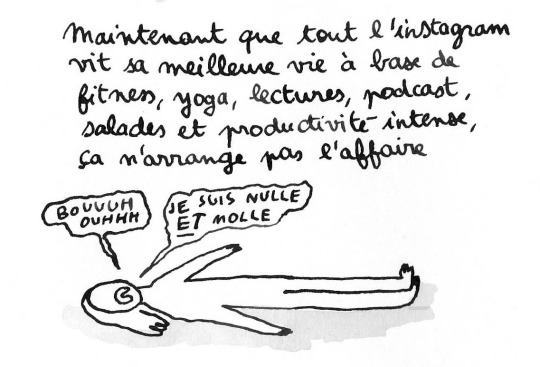 Maintenant que tout l'instagram
vit sa meilleure vie à base de
fitness, yoga, lectures, podcast,
salades et productivité intense,
ça n'arrange pas l'affaire
BOUUUH
OUHHH
JE SUIS NULLE
ET MOLLE